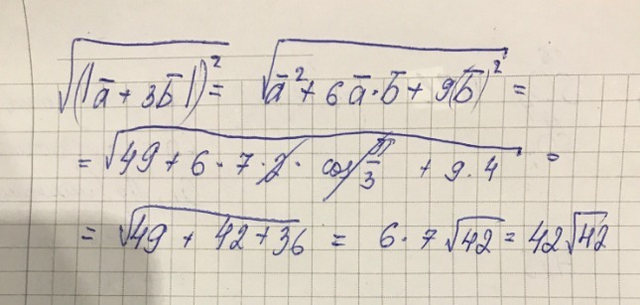 √(|a̅ + 3b̅|)² = √a̅² + 6a̅·b̅ + 9(b̅)² =
= √49 + 6 · 7 · 2 · cos π/3 + 9 · 4 =
= √49 + 42 + 36 = 6 · 7 √42 = 42√42